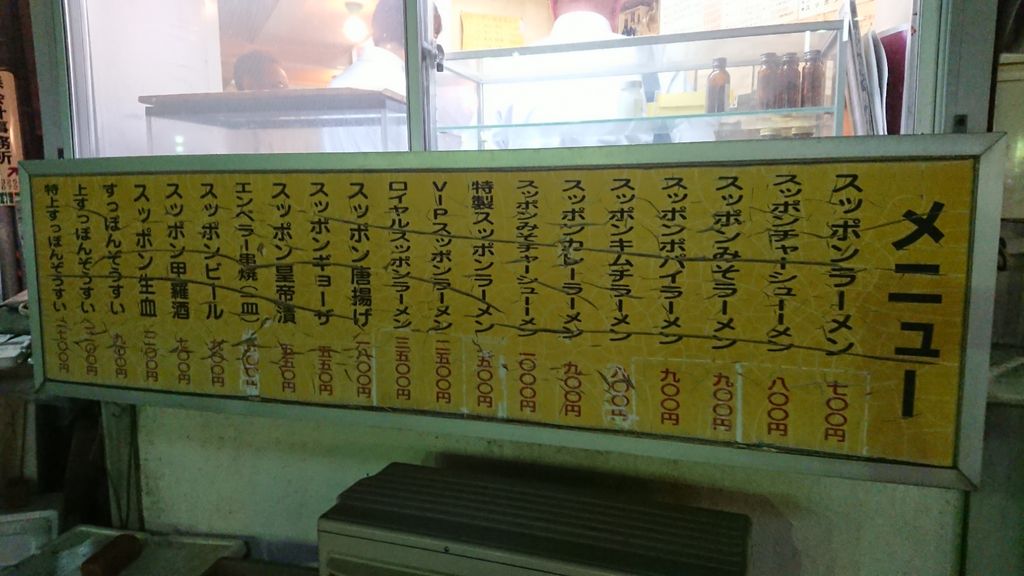 メニュー
スッポンラーメン 七〇〇円
スッポンチャーシューメン 八〇〇円
スッポンみそラーメン 九〇〇円
スッポンパイラーメン 九〇〇円
スッポンキムチラーメン 八〇〇円
スッポンカレーラーメン 九〇〇円
スッポンみそチャーシューメン 一〇〇〇円
特製スッポンラーメン 一五〇〇円
VIPスッポンラーメン 二五〇〇円
ロイヤルスッポンラーメン 三五〇〇円
スッポン唐揚げ 一八〇〇円
スッポンギョーザ 五五〇円
スッポン皇帝漬 五五〇円
エンペラー串焼(一皿)
スッポンビール
スッポン甲羅酒 七〇〇円
スッポン生血
すっぽんぞうすい 九〇〇円
上すっぽんぞうすい
特上すっぽんぞうすい